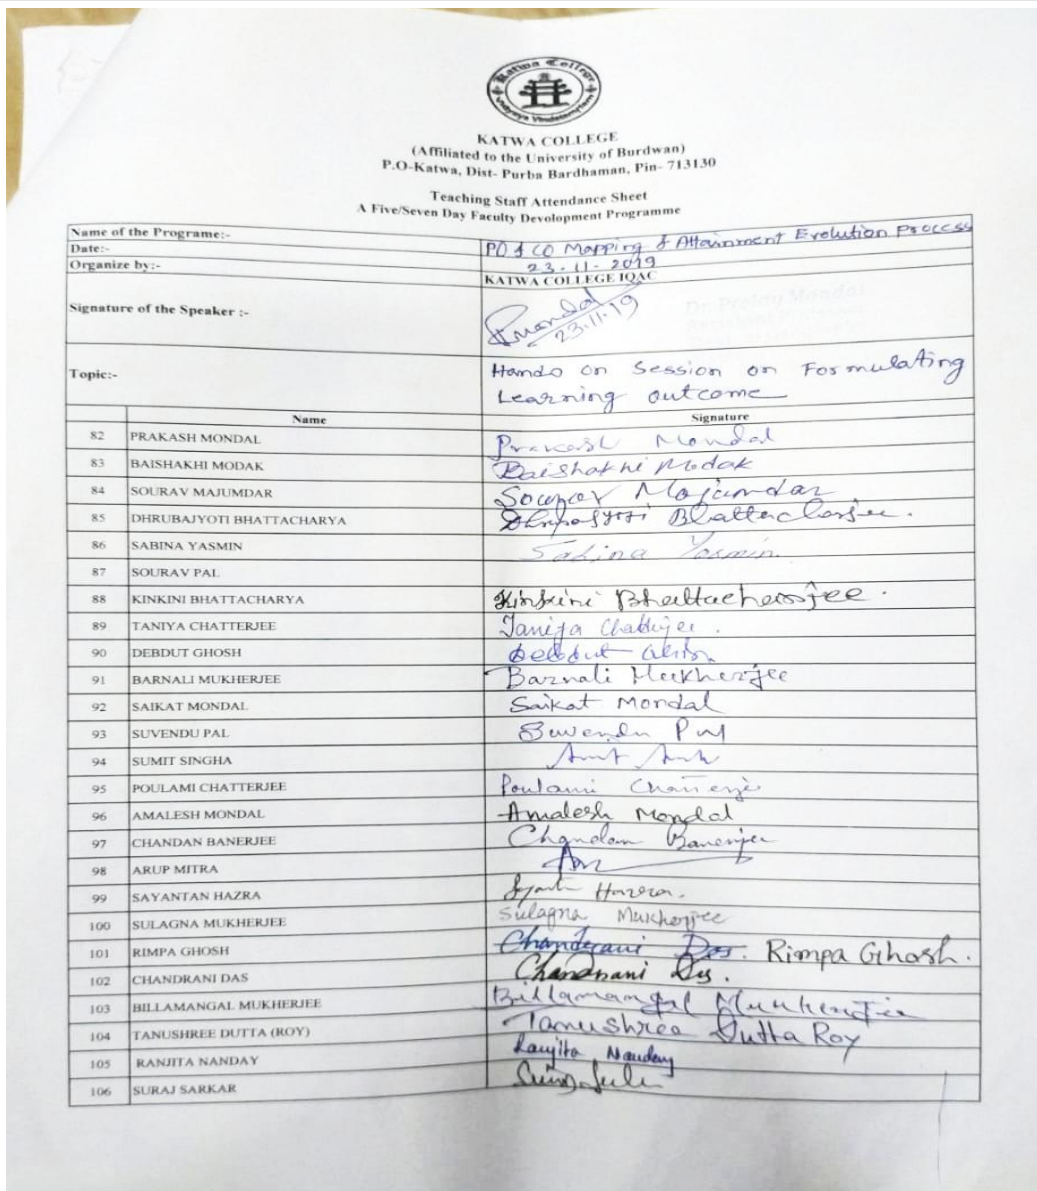 Katwa College
Vidyaya Vindateamritam
KATWA COLLEGE
(Affiliated to the University of Burdwan)
P.O-Katwa, Dist- Purba Bardhaman, Pin- 713130
Teaching Staff Attendance Sheet
A Five/Seven Day Faculty Devolopment Programme
Name of the Programe:- PO & CO Mapping & Attainment Evolution Process
Date:- 23-11-2019
Organize by:- KATWA COLLEGE IQAC
Signature of the Speaker :- Pmondal
23.11.19
Dr. Protoy Mondal
Assistant Professor
Topic:- Hands on Session on Formulating
Learning outcome
Name Signature
82 PRAKASH MONDAL Prakash Mondal
83 BAISHAKHI MODAK Baishakhi Modak
84 SOURAV MAJUMDAR Sourav Majumdar
85 DHRUBAJYOTI BHATTACHARYA Dhrubajyoti Bhattacharjee.
86 SABINA YASMIN Sabina Yasmin
87 SOURAV PAL
88 KINKINI BHATTACHARYA Kinkini Bhattacharjee.
89 TANIYA CHATTERJEE Taniya Chatterjee.
90 DEBDUT GHOSH Debdut Ghosh
91 BARNALI MUKHERJEE Barnali Mukherjee
92 SAIKAT MONDAL Saikat Mondal
93 SUVENDU PAL Suvendu Pal
94 SUMIT SINGHA
95 POULAMI CHATTERJEE Poulami Chatterjee
96 AMALESH MONDAL Amalesh Mondal
97 CHANDAN BANERJEE Chandan Banerjee
98 ARUP MITRA
99 SAYANTAN HAZRA Hazra.
100 SULAGNA MUKHERJEE Sulagna Mukherjee
101 RIMPA GHOSH Chandrani Das. Rimpa Ghosh.
102 CHANDRANI DAS Chandrani Das.
103 BILLAMANGAL MUKHERJEE Billamangal Mukherjee
104 TANUSHREE DUTTA (ROY) Tanushree Dutta Roy
105 RANJITA NANDAY Ranjita Nanday
106 SURAJ SARKAR